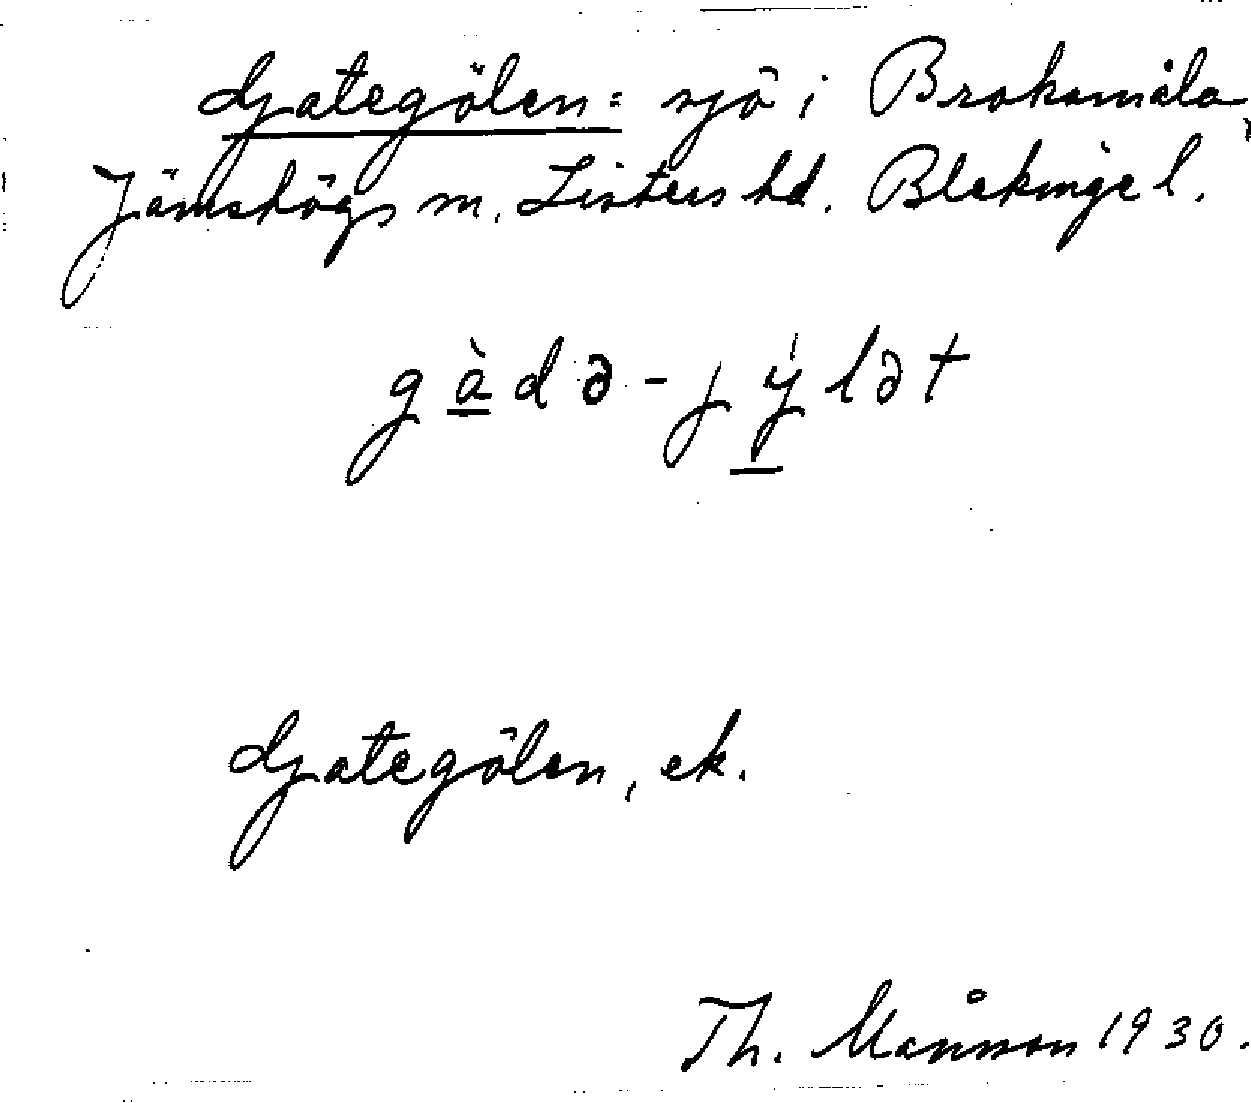 Gategölen: sjö i Brokamåla,
Jämshögs sn, Listers hd. Blekinge l.
gàdə-jýlət
Gategölen, ek.
Th. Månsson 1930.